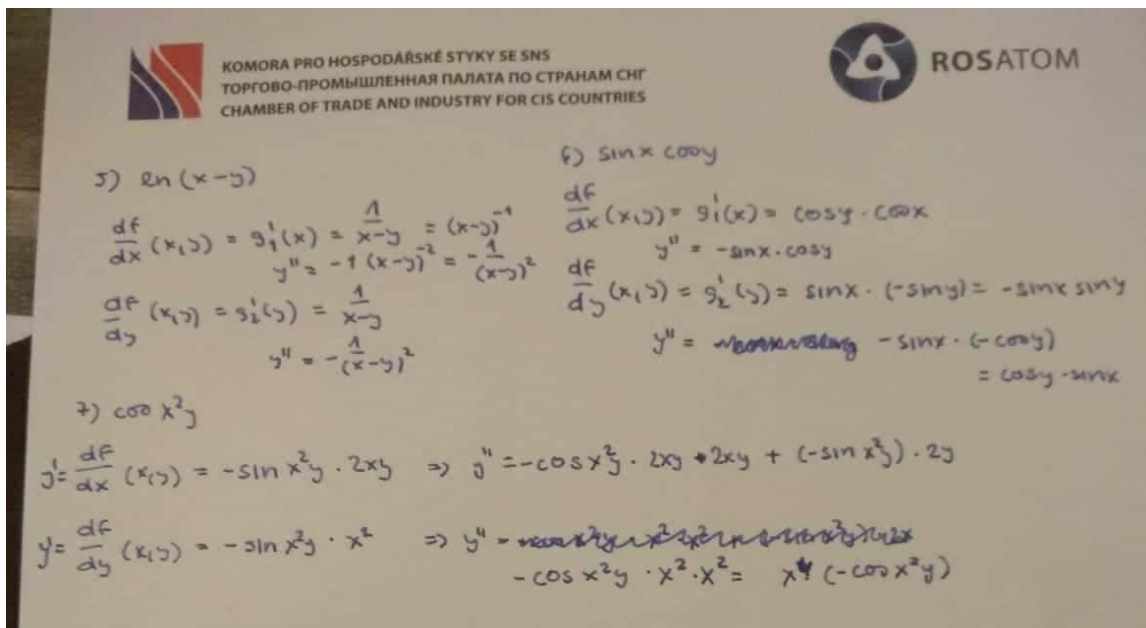 KOMORA PRO HOSPODÁŘSKÉ STYKY SE SNS
ТОРГОВО-ПРОМЫШЛЕННАЯ ПАЛАТА ПО СТРАНАМ СНГ
CHAMBER OF TRADE AND INDUSTRY FOR CIS COUNTRIES
ROSATOM
5) ln (x-y)
df/dx (x,y) = g₁'(x) = 1/(x-y) = (x-y)⁻¹
y'' = -1 (x-y)⁻² = -1/(x-y)²
df/dy (x,y) = g₂'(y) = 1/(x-y)
y'' = -1/(x-y)²
6) sinx cosy
df/dx (x,y) = g₁'(x) = cosy · cosx
y'' = -sinx · cosy
df/dy (x,y) = g₂'(y) = sinx · (-siny) = -sinx siny
y'' = -sinx · (-cosy)
= cosy · sinx
7) cos x²y
y' = df/dx (x,y) = -sin x²y · 2xy ⇒ y'' = -cosx²y · 2xy · 2xy + (-sin x²y) · 2y
y' = df/dy (x,y) = -sin x²y · x² ⇒ y'' =
-cos x²y · x² · x² = x⁴ (-cos x²y)